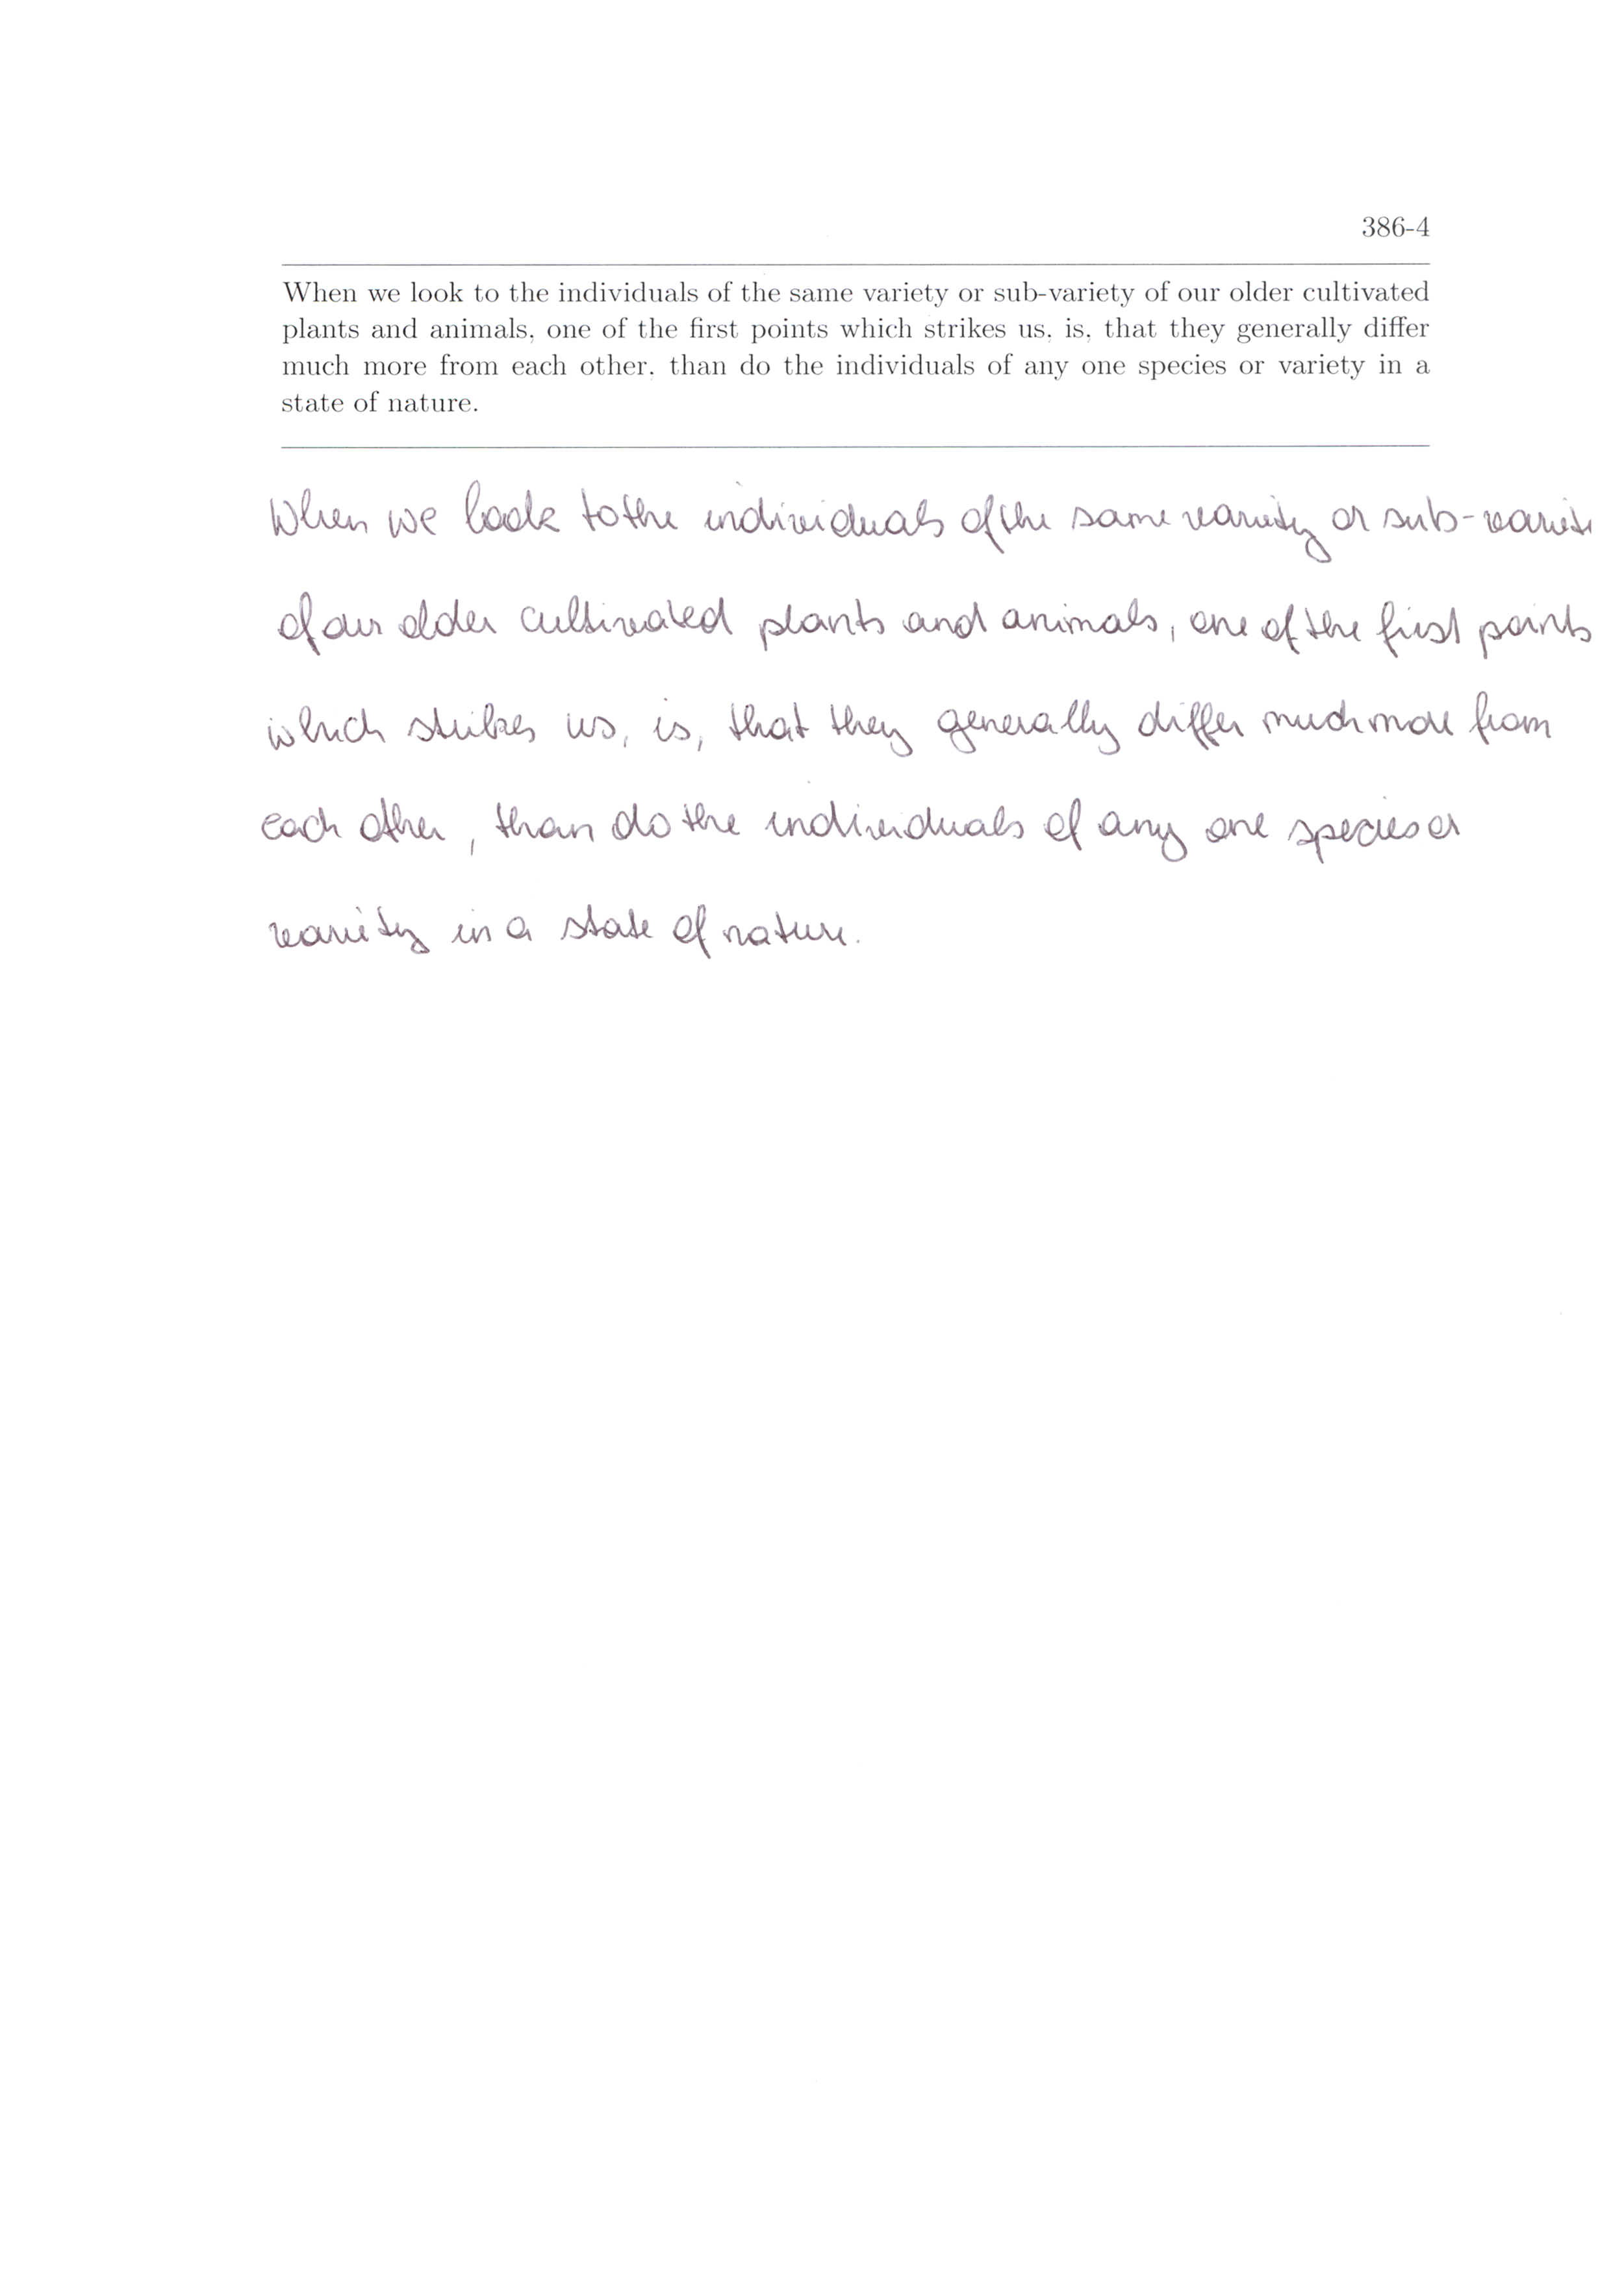 386-4
When we look to the individuals of the same variety or sub-variety of our older cultivated
plants and animals, one of the first points which strikes us, is, that they generally differ
much more from each other, than do the individuals of any one species or variety in a
state of nature.
When we look to the individuals of the same variety or sub-variet
of our older cultivated plants and animals, one of the first points
which strikes us, is, that they generally differ much more from
each other, than do the individuals of any one species or
variety in a state of nature.